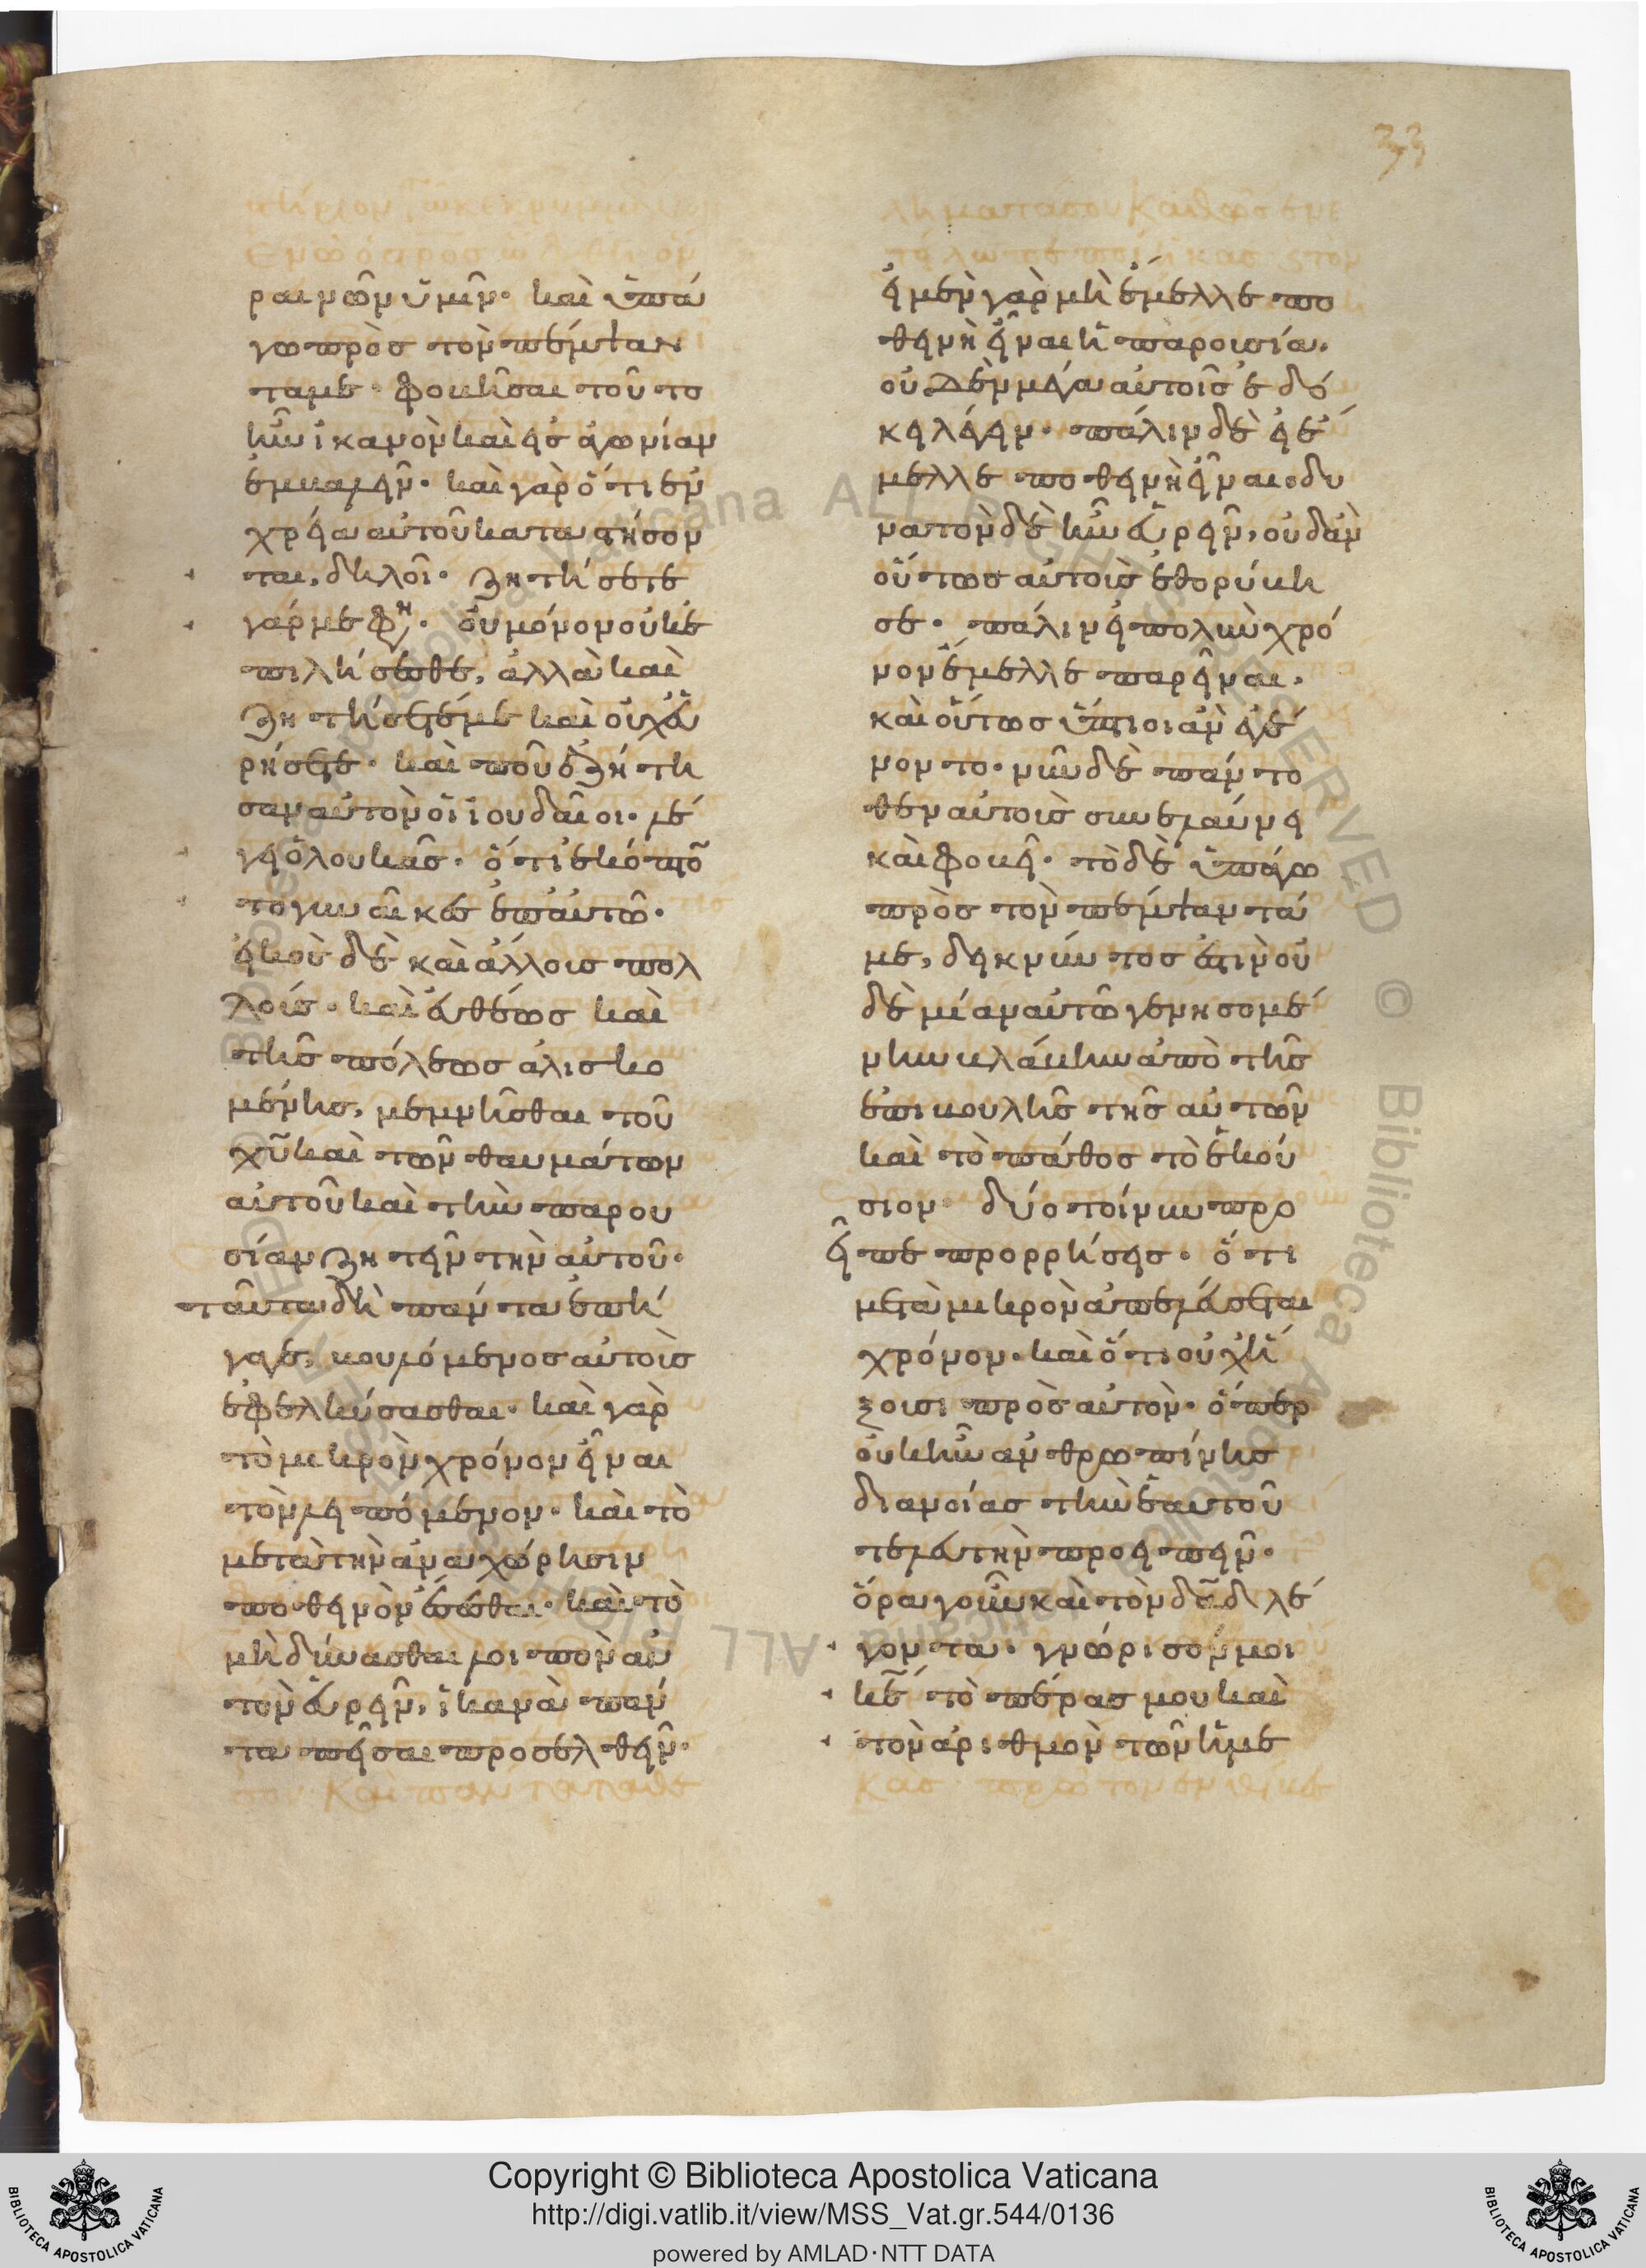 33
ραι μεθ' ὑμῶν. καὶ ὑπά
γω πρὸς τὸν πέμψαν
τά με. φοβῆσαι τοῦτο
ἦν ἱκανὸν καὶ εἰς ἀγωνίαν
ἐμβαλεῖν. καὶ γὰρ ὅτι ἐν
χρεία αὐτοῦ καταστήσον
ται, δηλοῖ. ζητήσετε
γάρ με φη. οὐ μόνον οὐκ ἐ
πιλήσεσθε, ἀλλὰ καὶ
ζητήσετέ με καὶ οὐχ εὑ
ρήσετε. καὶ ποῦ ἐζήτη
σαν αὐτὸν οἱ ἰουδαῖοι. λέ
γει ὁ λουκᾶς. ὅτι ἐκόπτον
το γυναῖκες ἐπ' αὐτῶ.
εἰκὸς δὲ καὶ ἄλλοις πολ
λοῖς. καὶ εὐθέως καὶ
τῆς πόλεως ἁλισκο
μένης, μεμνῆσθαι τοῦ
χ̅υ̅ καὶ τῶν θαυμάτων
αὐτοῦ καὶ τὴν παρου
σίαν ζητεῖν τὴν αὐτοῦ.
ταῦτα δὴ πάντα ἐπή
γαγε, βουλόμενος αὐτοὺς
ἐφελκύσασθαι. καὶ γὰρ
τὸ μικρὸν χρόνον εἶναι
τὸν λειπόμενον. καὶ τὸ
μετὰ τὴν ἀναχώρησιν
ποθεινὸν ἔσεσθαι. καὶ τὸ
μὴ δύνασθαι λοιπὸν αὐ
τὸν εὑρεῖν, ἱκανὰ πάν
τα πεῖσαι προσελθεῖν.
εἰ μὲν γὰρ μὴ ἔμελλε πο
θεινὴ εἶναι ἡ παρουσία.
οὐδὲν μέγα αὐτοῖς ἐδό
κει λέγειν. πάλιν δὲ εἰ ἔ
μελλε ποθεινὴ εἶναι. δυ
νατὸν δὲ ἦν εὑρεῖν, οὐδ' ἂν
οὕτως αὐτοὺς ἐθορύβη
σε. πάλιν εἰ πολὺν χρό
νον ἔμελλε παρεῖναι.
καὶ οὕτως ὕπτιοι ἂν ἐγέ
νοντο. νῦν δὲ πάντο
θεν αὐτοὺς συνελαύνει
καὶ φοβεῖ. τὸ δὲ ὑπάγω
πρὸς τὸν πέμψαντά
με, δεικνύντος ἐστὶν οὐ
δὲ μίαν αὐτῶ γενησομέ
νην βλάβην ἀπὸ τῆς
ἐπιβουλῆς τῆς αὐτῶν
καὶ τὸ πάθος τὸ ἑκού
σιον. δύο τοίνυν προ
εῖπε προρρήσεις. ὅτι
μετὰ μικρὸν ἀπελεύσεται
χρόνον. καὶ ὅτι οὐχ ἥ
ξουσι πρὸς αὐτὸν. ὅπερ
οὐκ ἦν ἀνθρωπίνης
διανοίας τὴν ἑαυτοῦ
τελευτὴν προειπεῖν.
ὅρα γοῦν καὶ τὸν δ̅α̅δ̅ λέ
γοντα. γνώρισόν μοι
κ̅ε̅ τὸ πέρας μου καὶ
τὸν ἀριθμὸν τῶν ἡμε
Copyright © Biblioteca Apostolica Vaticana
http://digi.vatlib.it/view/MSS_Vat.gr.544/0136
powered by AMLAD·NTT DATA